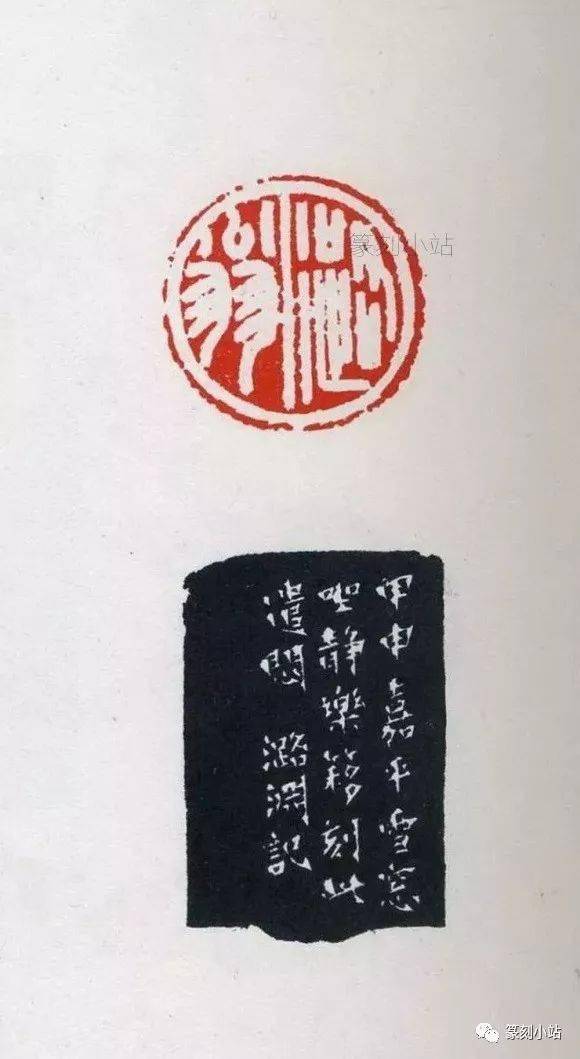 篆刻小站
甲申嘉平雪窓
坐静樂簃刻此
遣悶 潞渊記
篆刻小站